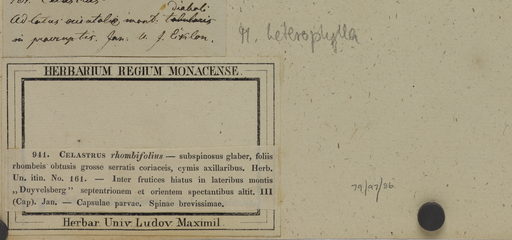 diaboli
Ad latus orientale, monti tabularis
in praeruptis. Jan. u. f. Ecklon.
M. heterophylla
HERBARIUM REGIUM MONACENSE.
941. CELASTRUS rhombifolius — subspinosus glaber, foliis
rhombeis obtusis grosse serratis coriaceis, cymis axillaribus. Herb.
Un. itin. No. 161. — Inter frutices hiatus in lateribus montis
„Duyvelsberg" septentrionem et orientem spectantibus altit. III
(Cap). Jan. — Capsulae parvae. Spinae brevissimae.
Herbar. Univ. Ludov. Maximil.
79/97/86